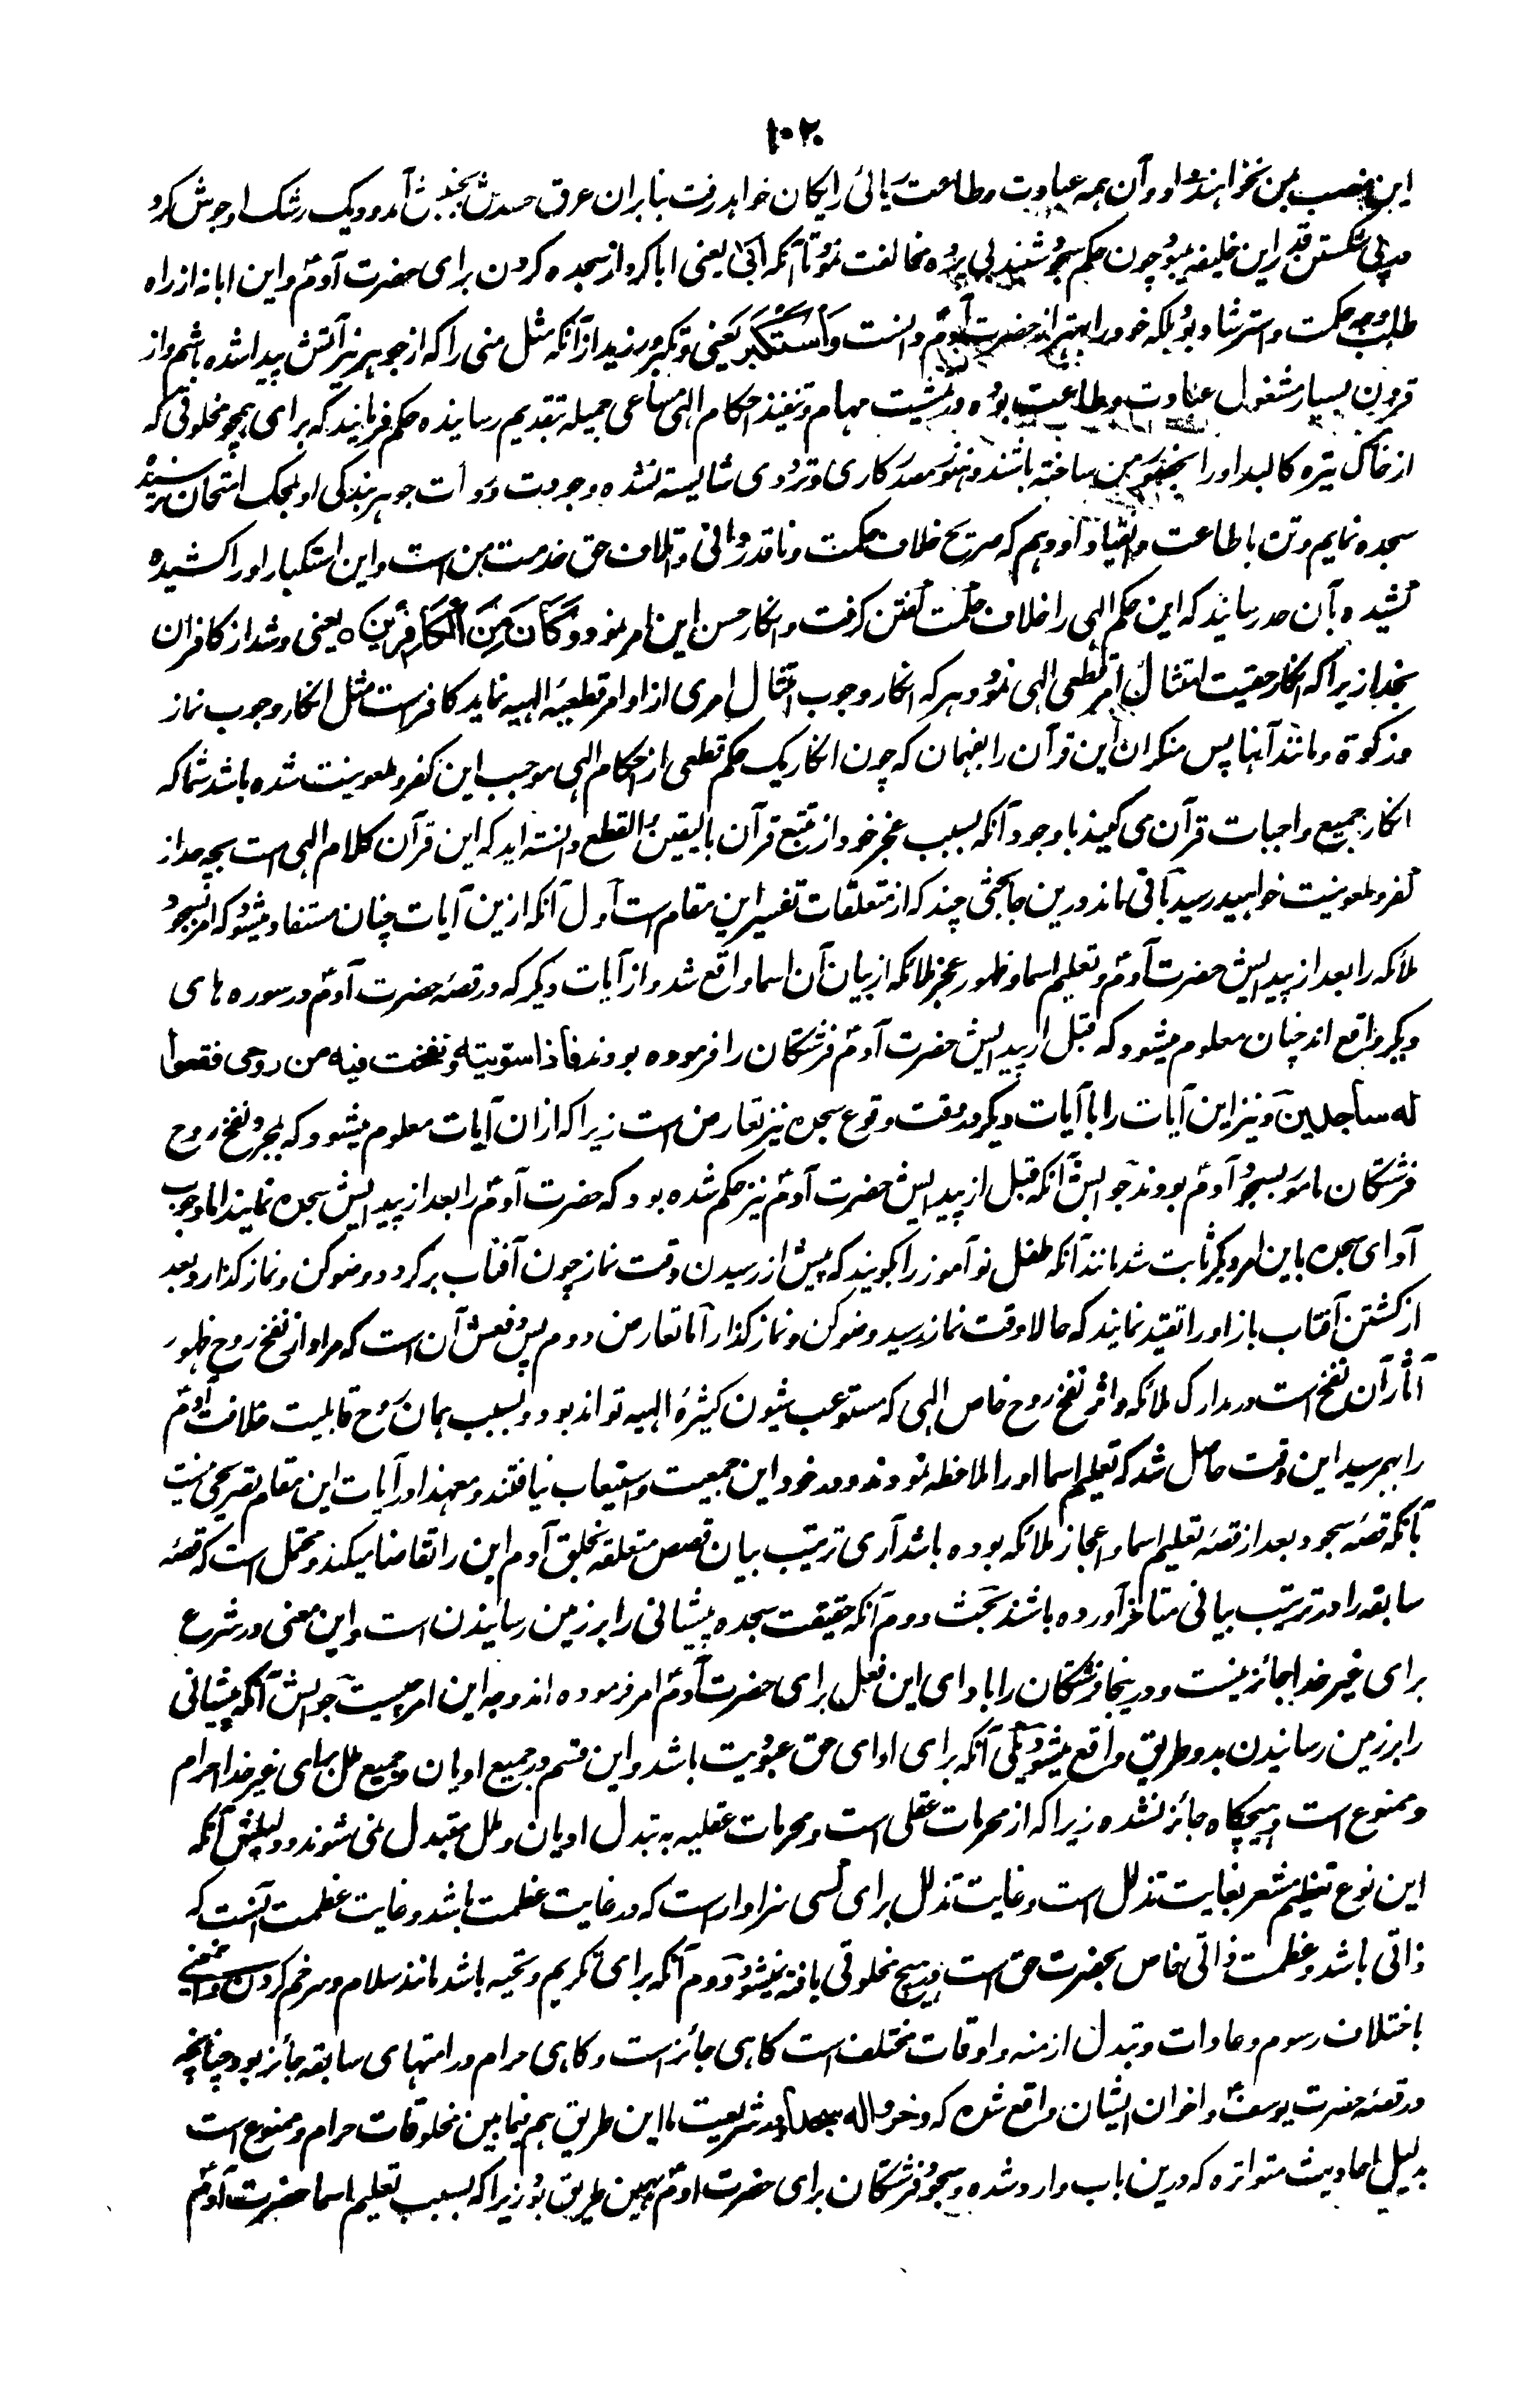 ۱۰۲
این منصب بمن نخواهند داد و آن همه عبادت و طاعت یائی رایگان خواهد رفت بنابران عرق حسدش بجنبش آمد و دیگ رشک او جوش کرد
در پی شکستن قدر این خلیفه میبود چون حکم سجود شنید بی پرده مخالفت نمود تا آنکه ابیٰ یعنی ابا کرد از سجده کردن برای حضرت آدمؑ و این ابا نه از راه
طلب وجه حکمت و استرشاد بود بلکه خود را بهتر از حضرت آدمؑ دانست وَاسْتَكْبَرَ یعنی و تکبر ورزید از آنکه مثل منی را که از جوهر نیر آتش پیدا شده باشم و از
قرون بسیار مشغول عبادت و طاعت بوده در تمشیت مهام و تنفیذ احکام الٰهی مساعی جمیله بتقدیم رسانیده حکم فرمایند که برای همچو مخلوقی که
از خاک تیره کالبد او را بحضور من ساخته باشند و هنوز مصدر کاری و ترددی شایسته نشده وجودت و رداءت جوهر بندگی او بمحک امتحان نرسیده
سجده نمایم و تن باطاعت و انقیاد او دهم که صریح خلاف حکمت و ناقدردانی و اتلاف حق خدمت من است و این استکبار او را کشیده
کشیده بآن حد رسانید که این حکم الٰهی را خلاف حکمت گفتن گرفت و انکار حسن این امر نمود وَكَانَ مِنَ الْكَافِرِيْنَ ه یعنی و شد از کافران
بخدا زیرا که انکار حقیت امتثال امر قطعی الٰهی نمود و هر که انکار وجوب امتثال امری از اوامر قطعیهٔ الٰهیه نماید کافرست مثل انکار وجوب نماز
و زکوة و مانند آنها پس منکران این قرآن را بفهمان که چون انکار یک حکم قطعی از احکام الٰهی موجب این کفر و ملعونیت شده باشد شما که
انکار جمیع واجبات قرآن می کنید با وجود آنکه بسبب عجز خود از تتبع قرآن بالیقین والقطع دانسته اید که این قرآن کلام الٰهی است بچه حد از
کفر و ملعونیت خواهید رسید باقی ماند درین جا بحثی چند که از متعلقات تفسیر این مقام است اول آنکه ازین آیات چنان مستفاد میشود که امر بسجود
ملائکه را بعد از پیدایش حضرت آدمؑ و تعلیم اسما و ظهور عجز ملائکه از بیان آن اسما واقع شد و از آیات دیگر که در قصهٔ حضرت آدمؑ در سوره های
دیگر واقع اند چنان معلوم میشود که قبل از پیدایش حضرت آدمؑ فرشتگان را فرموده بودند فاذا سویته ونفخت فیه من روحی فقعوا
له ساجدین و نیز این آیات را با آیات دیگر در وقت وقوع سجده نیز تعارض است زیرا که ازان آیات معلوم میشود که بمجرد نفخ روح
فرشتگان مامور بسجود آدمؑ بودند جوابش آنکه قبل از پیدایش حضرت آدمؑ نیز حکم شده بود که حضرت آدمؑ را بعد از پیدایش سجده نمایند اما وجوب
ادای سجده باین امر دیگر ثابت شد مانند آنکه طفل نوآموز را گویند که پیش از رسیدن وقت نماز چون آفتاب برگردد وضو کن و نماز گذار و بعد
از گشتن آفتاب باز او را تقید نمایند که حالا وقت نماز رسید وضو کن و نماز گذار اما تعارض دوم پس دفعش آن است که مراد از نفخ روح ظهور
آثار آن نفخ است در مدارک ملائکه و اثر نفخ روح خاص الٰهی که مستوعب شیون کثیرهٔ الٰهیه تواند بود و بسبب همان روح قابلیت خلافت آدمؑ
را بهمرسید این وقت حاصل شد که تعلیم اسما او را ملاحظه نمودند و در خود این جمعیت و استیعاب نیافتند و معهذا در آیات این مقام تصریحی نیست
بآنکه قصهٔ سجود بعد از قصهٔ تعلیم اسما و اعجاز ملائکه بوده باشد آری ترتیب بیان قصص متعلقه بخلق آدم این را تقاضا میکند و محتمل است که قصهٔ
سابقه را در ترتیب بیانی متاخر آورده باشند بحث دوم آنکه حقیقت سجده پیشانی را بر زمین رسانیدن است و این معنی در شرع
برای غیر خدا جائز نیست و درینجا فرشتگان را بادای این فعل برای حضرت آدمؑ امر فرموده اند وجه این امر چیست جوابش آنکه پیشانی
را بر زمین رسانیدن بدو طریق واقع میشود یکی آنکه برای ادای حق عبودیت باشد و این قسم در جمیع ادیان و جمیع ملل برای غیر خدا حرام
و ممنوع است هیچگاه جائز نشده زیرا که از محرمات عقلی است و محرمات عقلیه به تبدل ادیان و ملل متبدل نمی شوند و دلیلش آنکه
این نوع تعظیم مشعر بغایت تذلل است و غایت تذلل برای کسی سزاوار است که در غایت عظمت باشد و غایت عظمت آنست که
ذاتی باشد و عظمت ذاتی خاص بحضرت حق است در هیچ مخلوقی یافته نمیشود دوم آنکه برای تکریم و تحیه باشد مانند سلام و سر خم کردن
باختلاف رسوم و عادات و تبدل ازمنه و اوقات مختلف است گاهی جائز است و گاهی حرام در امتهای سابقه جائز بود چنانچه
در قصهٔ حضرت یوسفؑ و اخوان ایشان واقع شده که وخروا له سجدا در شریعت ما این طریق هم فیما بین مخلوقات حرام و ممنوع است
بدلیل احادیث متواتره که درین باب وارد شده و سجود فرشتگان برای حضرت آدمؑ بهمین طریق بود زیرا که بسبب تعلیم اسما حضرت آدمؑ